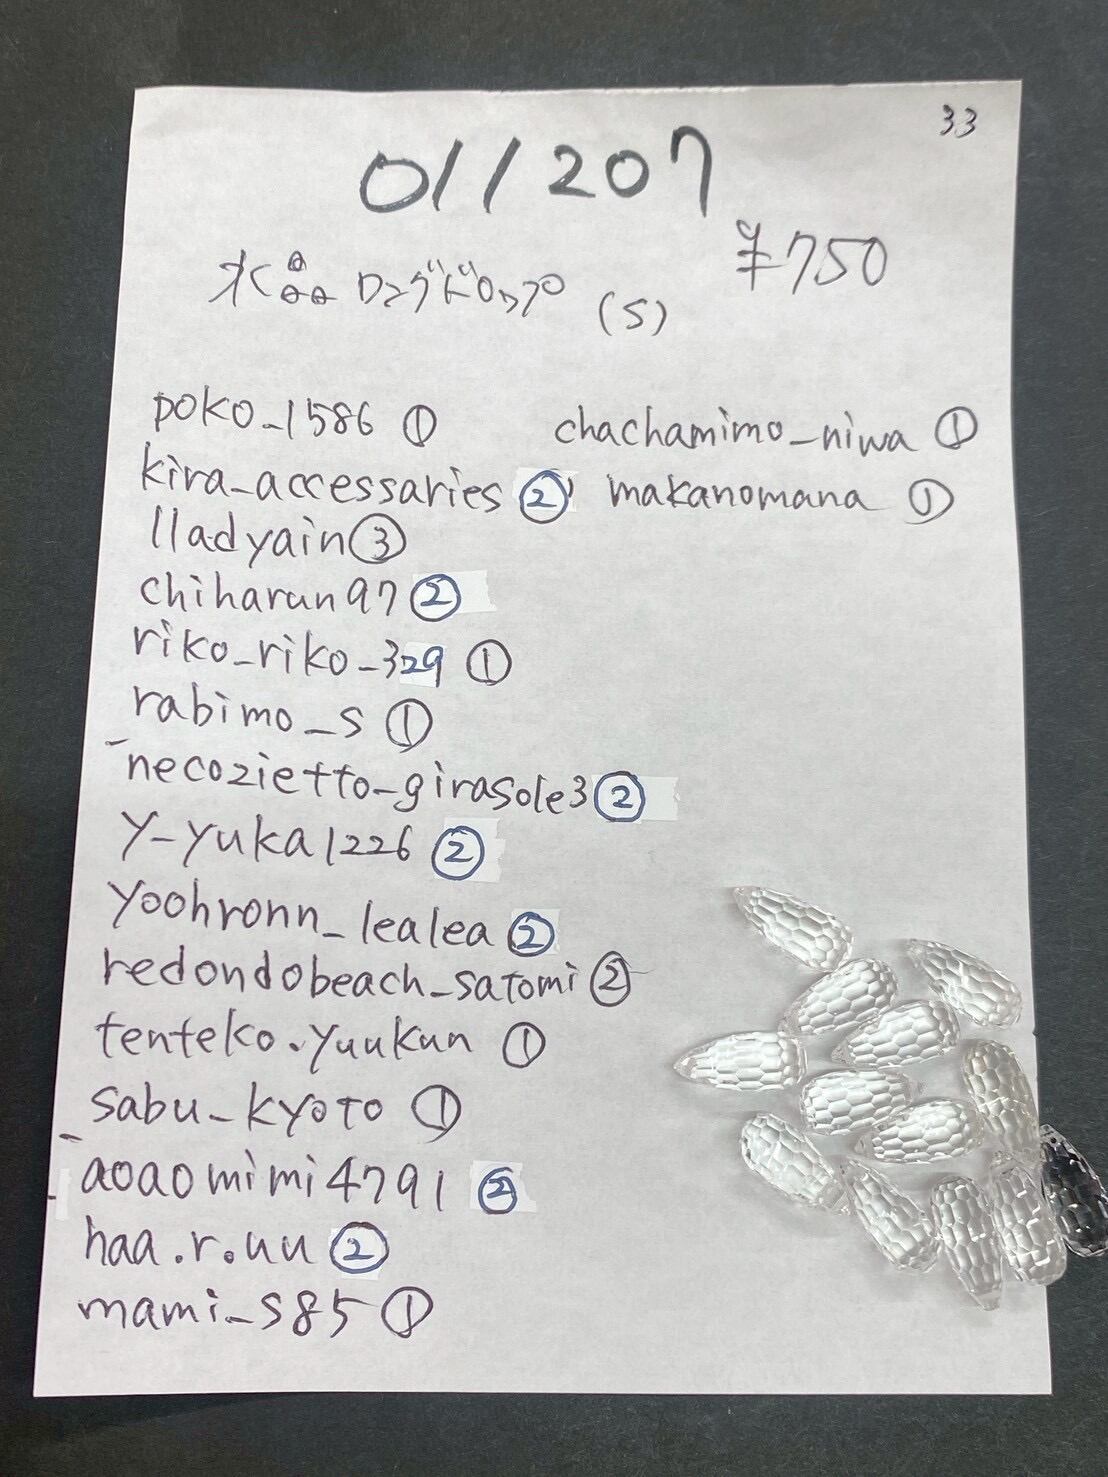 33
011207
¥750
水晶ロングドロップ (S)
poko_1586 ①
kira_accessaries ②
lladyain ③
chiharun97 ②
riko_riko_329 ①
rabimo_s ①
necozietto_girasole3 ②
y-yuka1226 ②
yoohronn_lealea ②
redondobeach_satomi ②
tenteko.yuukun ①
sabu_kyoto ①
aoaomimi4791 ②
haa.r.uu ②
mami_s85 ①
chachamimo_niwa ①
makanomana ①